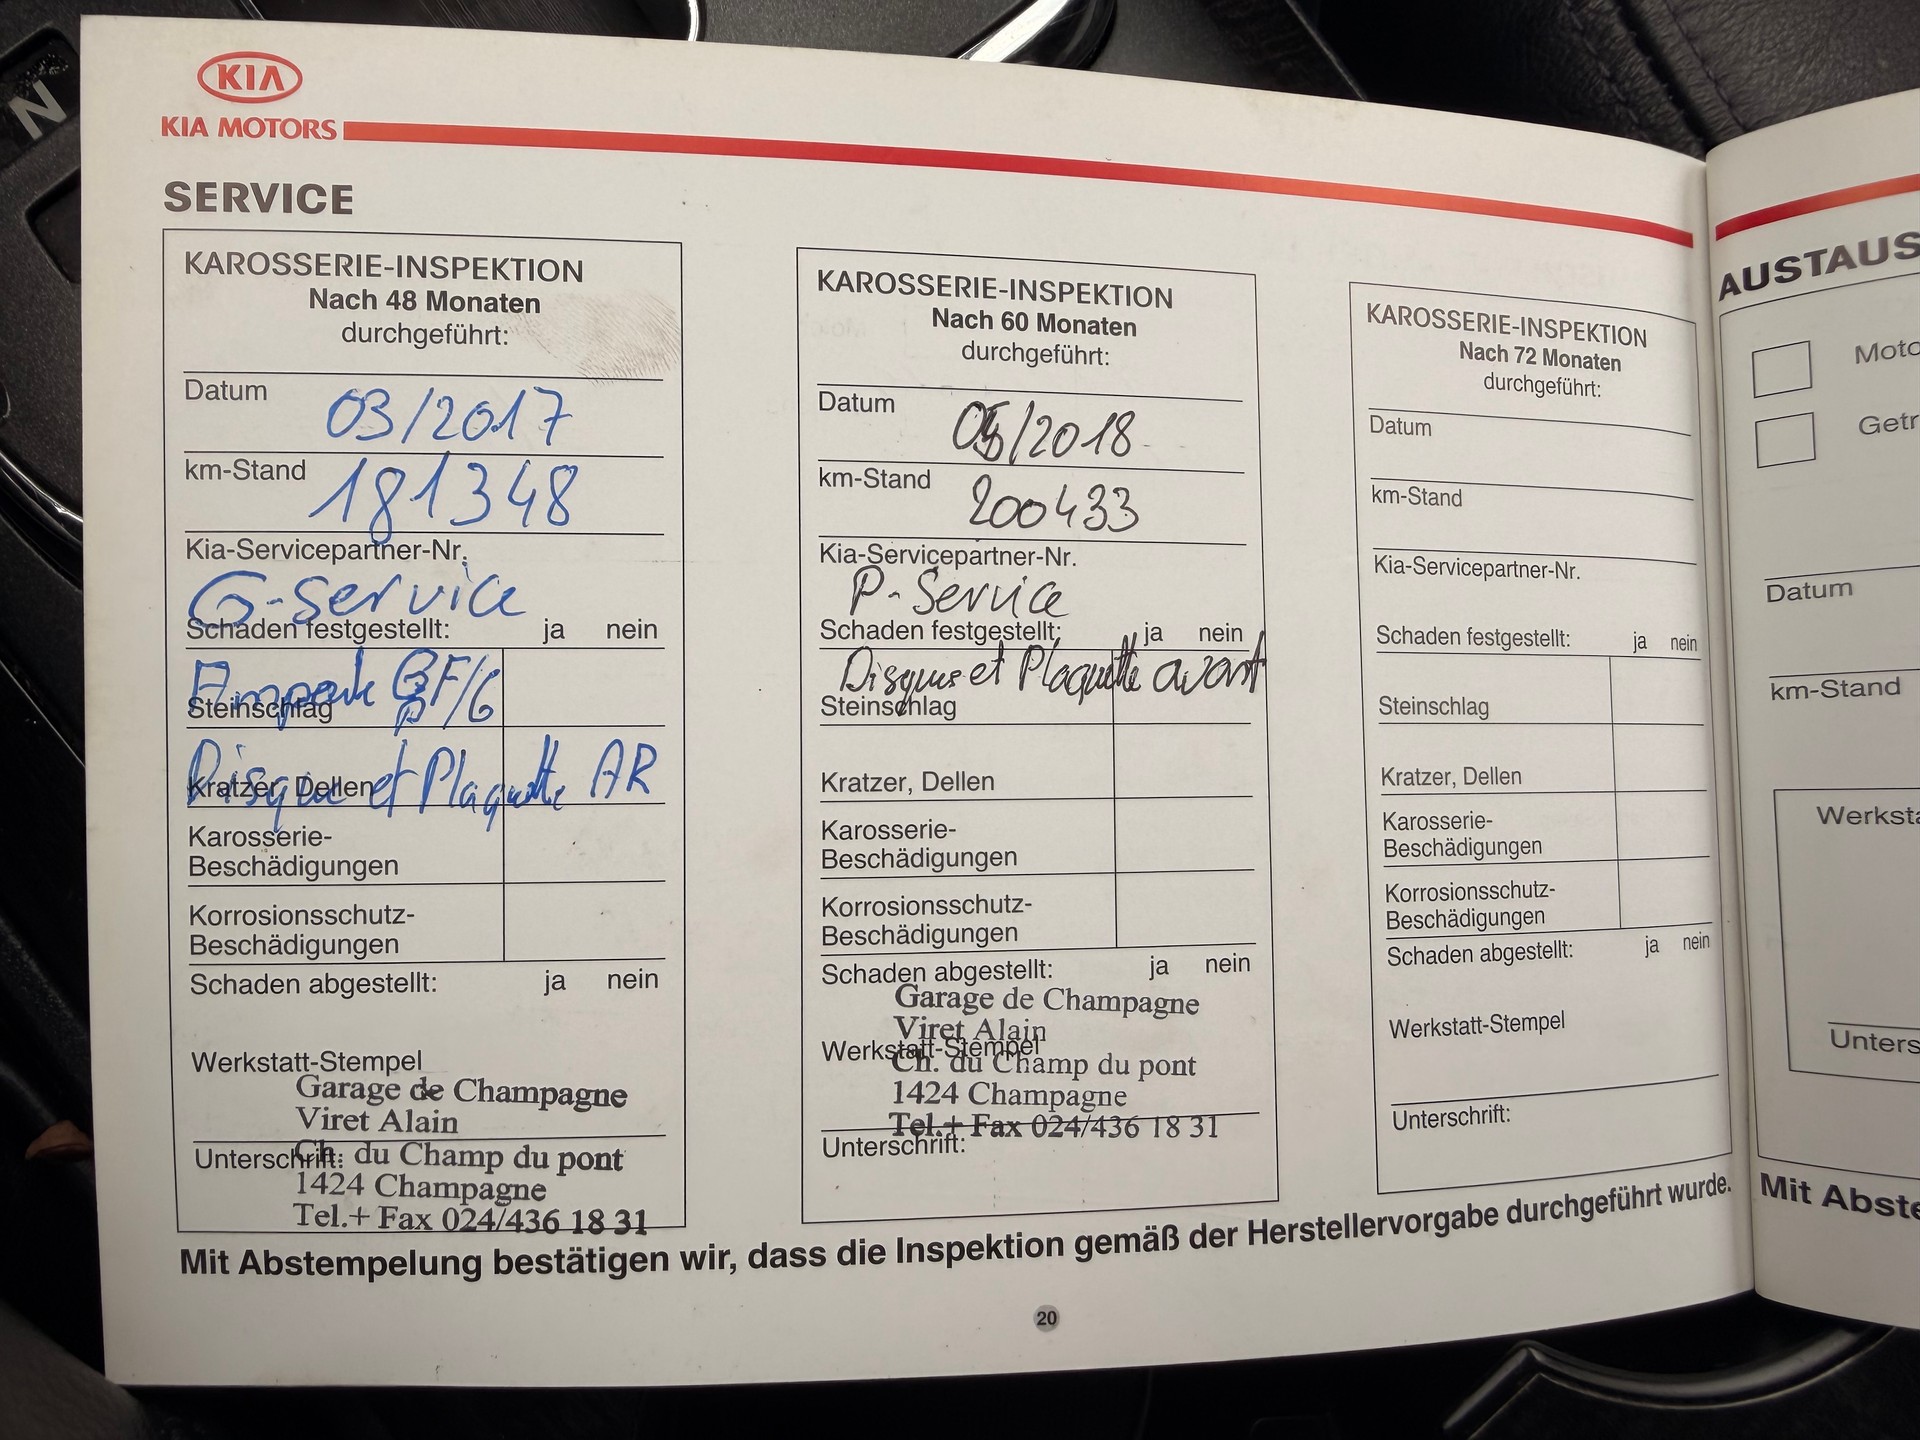 N
KIA
KIA MOTORS
SERVICE
KAROSSERIE-INSPEKTION
Nach 48 Monaten
durchgeführt:
Datum 03/2017
km-Stand 181348
Kia-Servicepartner-Nr.
G-service
Schaden festgestellt: ja nein
F/G
Steinschlag
Disque et Plaquette AR
Kratzer, Dellen
Karosserie-
Beschädigungen
Korrosionsschutz-
Beschädigungen
Schaden abgestellt: ja nein
Werkstatt-Stempel
Garage de Champagne
Viret Alain
Unterschrift:
Ch. du Champ du pont
1424 Champagne
Tel.+ Fax 024/436 18 31
KAROSSERIE-INSPEKTION
Nach 60 Monaten
durchgeführt:
Datum /2018
km-Stand 200433
Kia-Servicepartner-Nr.
P-Service
Schaden festgestellt: ja nein
Disques et Plaquette avant
Steinschlag
Kratzer, Dellen
Karosserie-
Beschädigungen
Korrosionsschutz-
Beschädigungen
Schaden abgestellt: ja nein
Garage de Champagne
Viret Alain
Werkstatt-Stempel
Ch. du Champ du pont
1424 Champagne
Tel.+ Fax 024/436 18 31
Unterschrift:
KAROSSERIE-INSPEKTION
Nach 72 Monaten
durchgeführt:
Datum
km-Stand
Kia-Servicepartner-Nr.
Schaden festgestellt: ja nein
Steinschlag
Kratzer, Dellen
Karosserie-
Beschädigungen
Korrosionsschutz-
Beschädigungen
Schaden abgestellt: ja nein
Werkstatt-Stempel
Unterschrift:
Mit Abstempelung bestätigen wir, dass die Inspektion gemäß der Herstellervorgabe durchgeführt wurde.
20
AUSTAUS
Moto
Getr
Datum
km-Stand
Werksta
Unters
Mit Abste